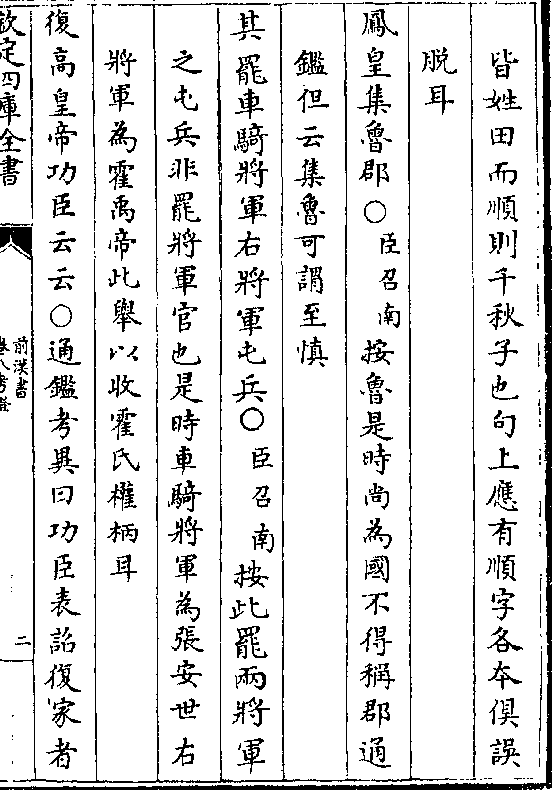 皆姓田而順則千秋子也句上應有順字各本俱誤
脫耳
鳳皇集魯郡○臣召南按魯是時尚為國不得稱郡通
鑑但云集魯可謂至慎
其罷車騎將軍右將軍屯兵○臣召南按此罷兩將軍
之屯兵非罷將軍官也是時車騎將軍為張安世右
將軍為霍禹帝此舉以收霍氏權柄耳
復高皇帝功臣云云○通鑑考異曰功臣表詔復家者
欽定四庫全書
前漢書
卷八考證
二